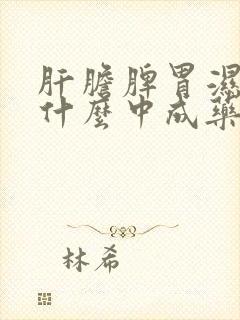 肝膽脾胃濕
什麼中成藥
林希